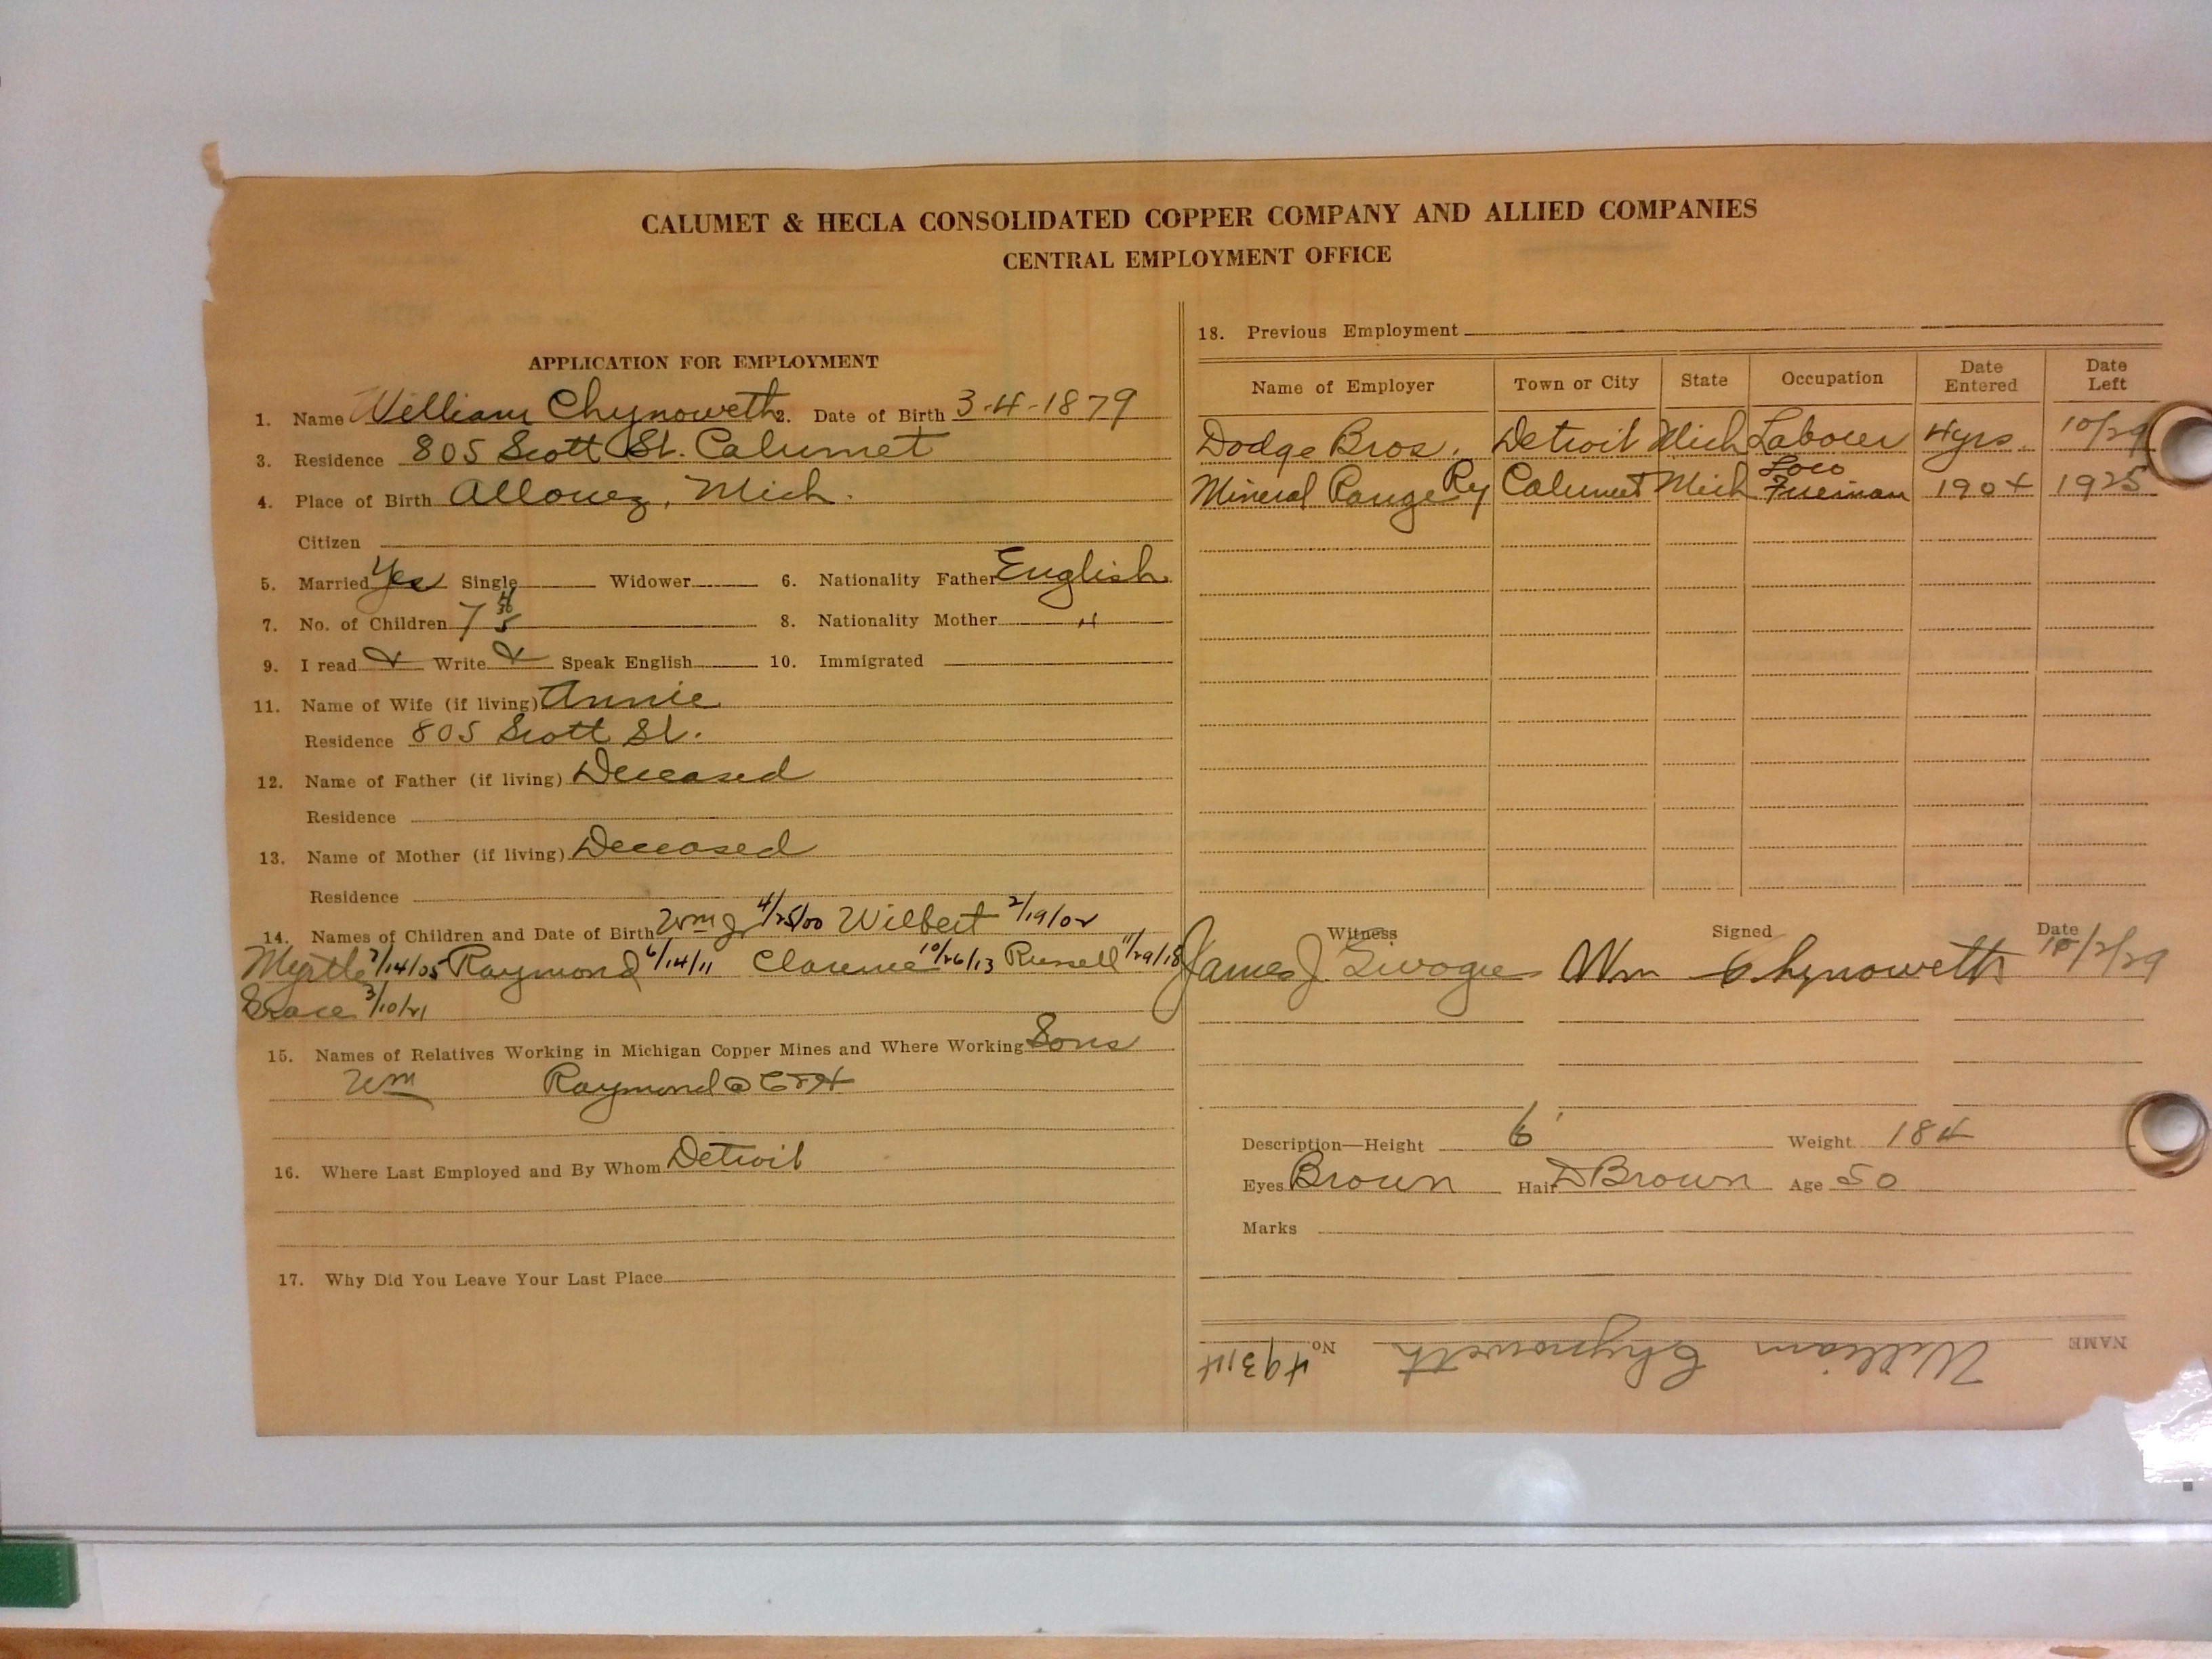 CALUMET & HECLA CONSOLIDATED COPPER COMPANY AND ALLIED COMPANIES
CENTRAL EMPLOYMENT OFFICE
APPLICATION FOR EMPLOYMENT
1. Name William Chynoweth 2. Date of Birth 3-4-1879
3. Residence 805 Scott St. Calumet
4. Place of Birth Allouez, Mich.
Citizen
5. Married Yes Single Widower 6. Nationality Father English
7. No. of Children 7 5 8. Nationality Mother "
9. I read Write Speak English 10. Immigrated
11. Name of Wife (if living) Annie
Residence 805 Scott St.
12. Name of Father (if living) Deceased
Residence
13. Name of Mother (if living) Deceased
Residence
14. Names of Children and Date of Birth Wm J 4/25/00 Wilbert 2/19/02
Myrtle 7/14/05 Raymond 6/14/11 Clarence 10/26/13 Russell 11/29/18
Grace 3/10/21
15. Names of Relatives Working in Michigan Copper Mines and Where Working Sons
Wm Raymond @ C&H
16. Where Last Employed and By Whom Detroit
17. Why Did You Leave Your Last Place
18. Previous Employment
Name of Employer Town or City State Occupation Date Entered Date Left
Dodge Bros. Detroit Mich Labourer 4yrs. 10/29
Mineral Range Ry Calumet Mich Loco Fireman 1904 1925
Witness Signed Date
James J. Wm Chynoweth 10/2/29
Description—Height 6' Weight 184
Eyes Brown Hair D Brown Age 50
Marks
NAME William Chynoweth No. 49314